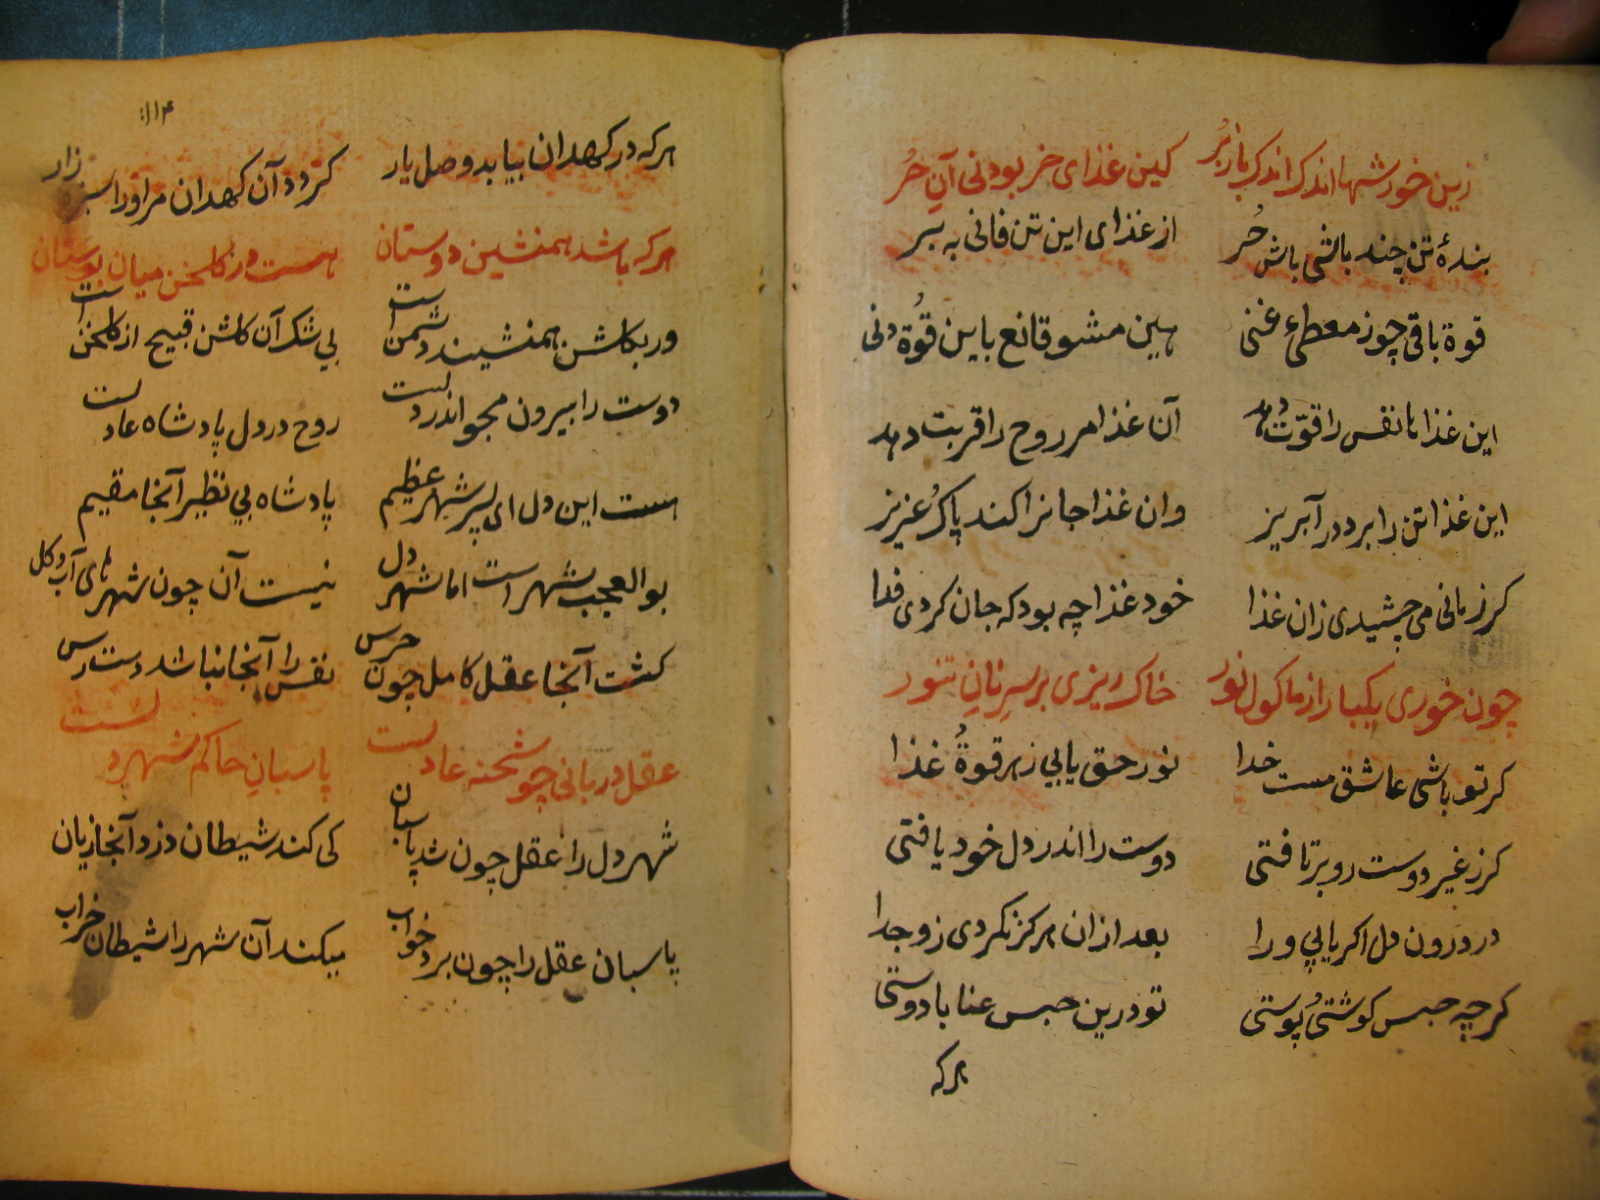 زین خورشها اندک اندک باز بُر کین غذای خر بود نی آنِ حُر
بندهٔ تن چند باشی باش حُر از غذای این تن فانی به بر
قوة باقی چوز معطیء غنی هین مشو قانع باین قُوة دنی
این غذاها نفس را قوّت دهد آن غذا مر روح را قربت دهد
این غذا تن را برد در آبریز وان غذا جانرا کند پاک عزیز
کر زمانی می چشیدی زان غذا خود غذا چه بود که جان کردی فدا
چون خوری یکبار از ماکول نور خاک ریزی بر سرِ نانِ تنور
کر تو باشی عاشق مست خدا نور حق یابی ز هر قوةُ غذا
کر ز غیر دوست رو بر تافتی دوست را اندر دل خود یافتی
در درون دل اکر یابی ورا بعد ازان هرکز نکردی زو جدا
کرچه حبس کوشتیُ پوستی تو درین حبس عنا با دوستی
هرکه
۱۱۴
هرکه در کهدان بیابد وصل یار کردد آن کهدان مر اورا سبزه زار
هرکه باشد همنشین دوستان هست در کلخن میان بوستان
ور بکلشن همنشیند دشمنست بی شک آن کلشن قبیح از کلخنست
دوست را بیرون مجو اندر دلست روح در دل پادشاه عادلست
هست این دل ای پسر شهر عظیم پادشاه بی نظیر آنجا مقیم
بو العجب شهر است اما شهر دل نیست آن چون شهر های آب و کل
کشت آنجا عقل کامل چون حرس نفس را آنجا نباشد دست رس
عقل دربانی چو شحنه عادلست پاسبانِ حاکم شهر دلست
شهر دل را عقل چون شد پاسبان کی کند شیطان دزد آنجا زیان
پاسبان عقل را چون برد خواب میکند آن شهر را شیطان خراب